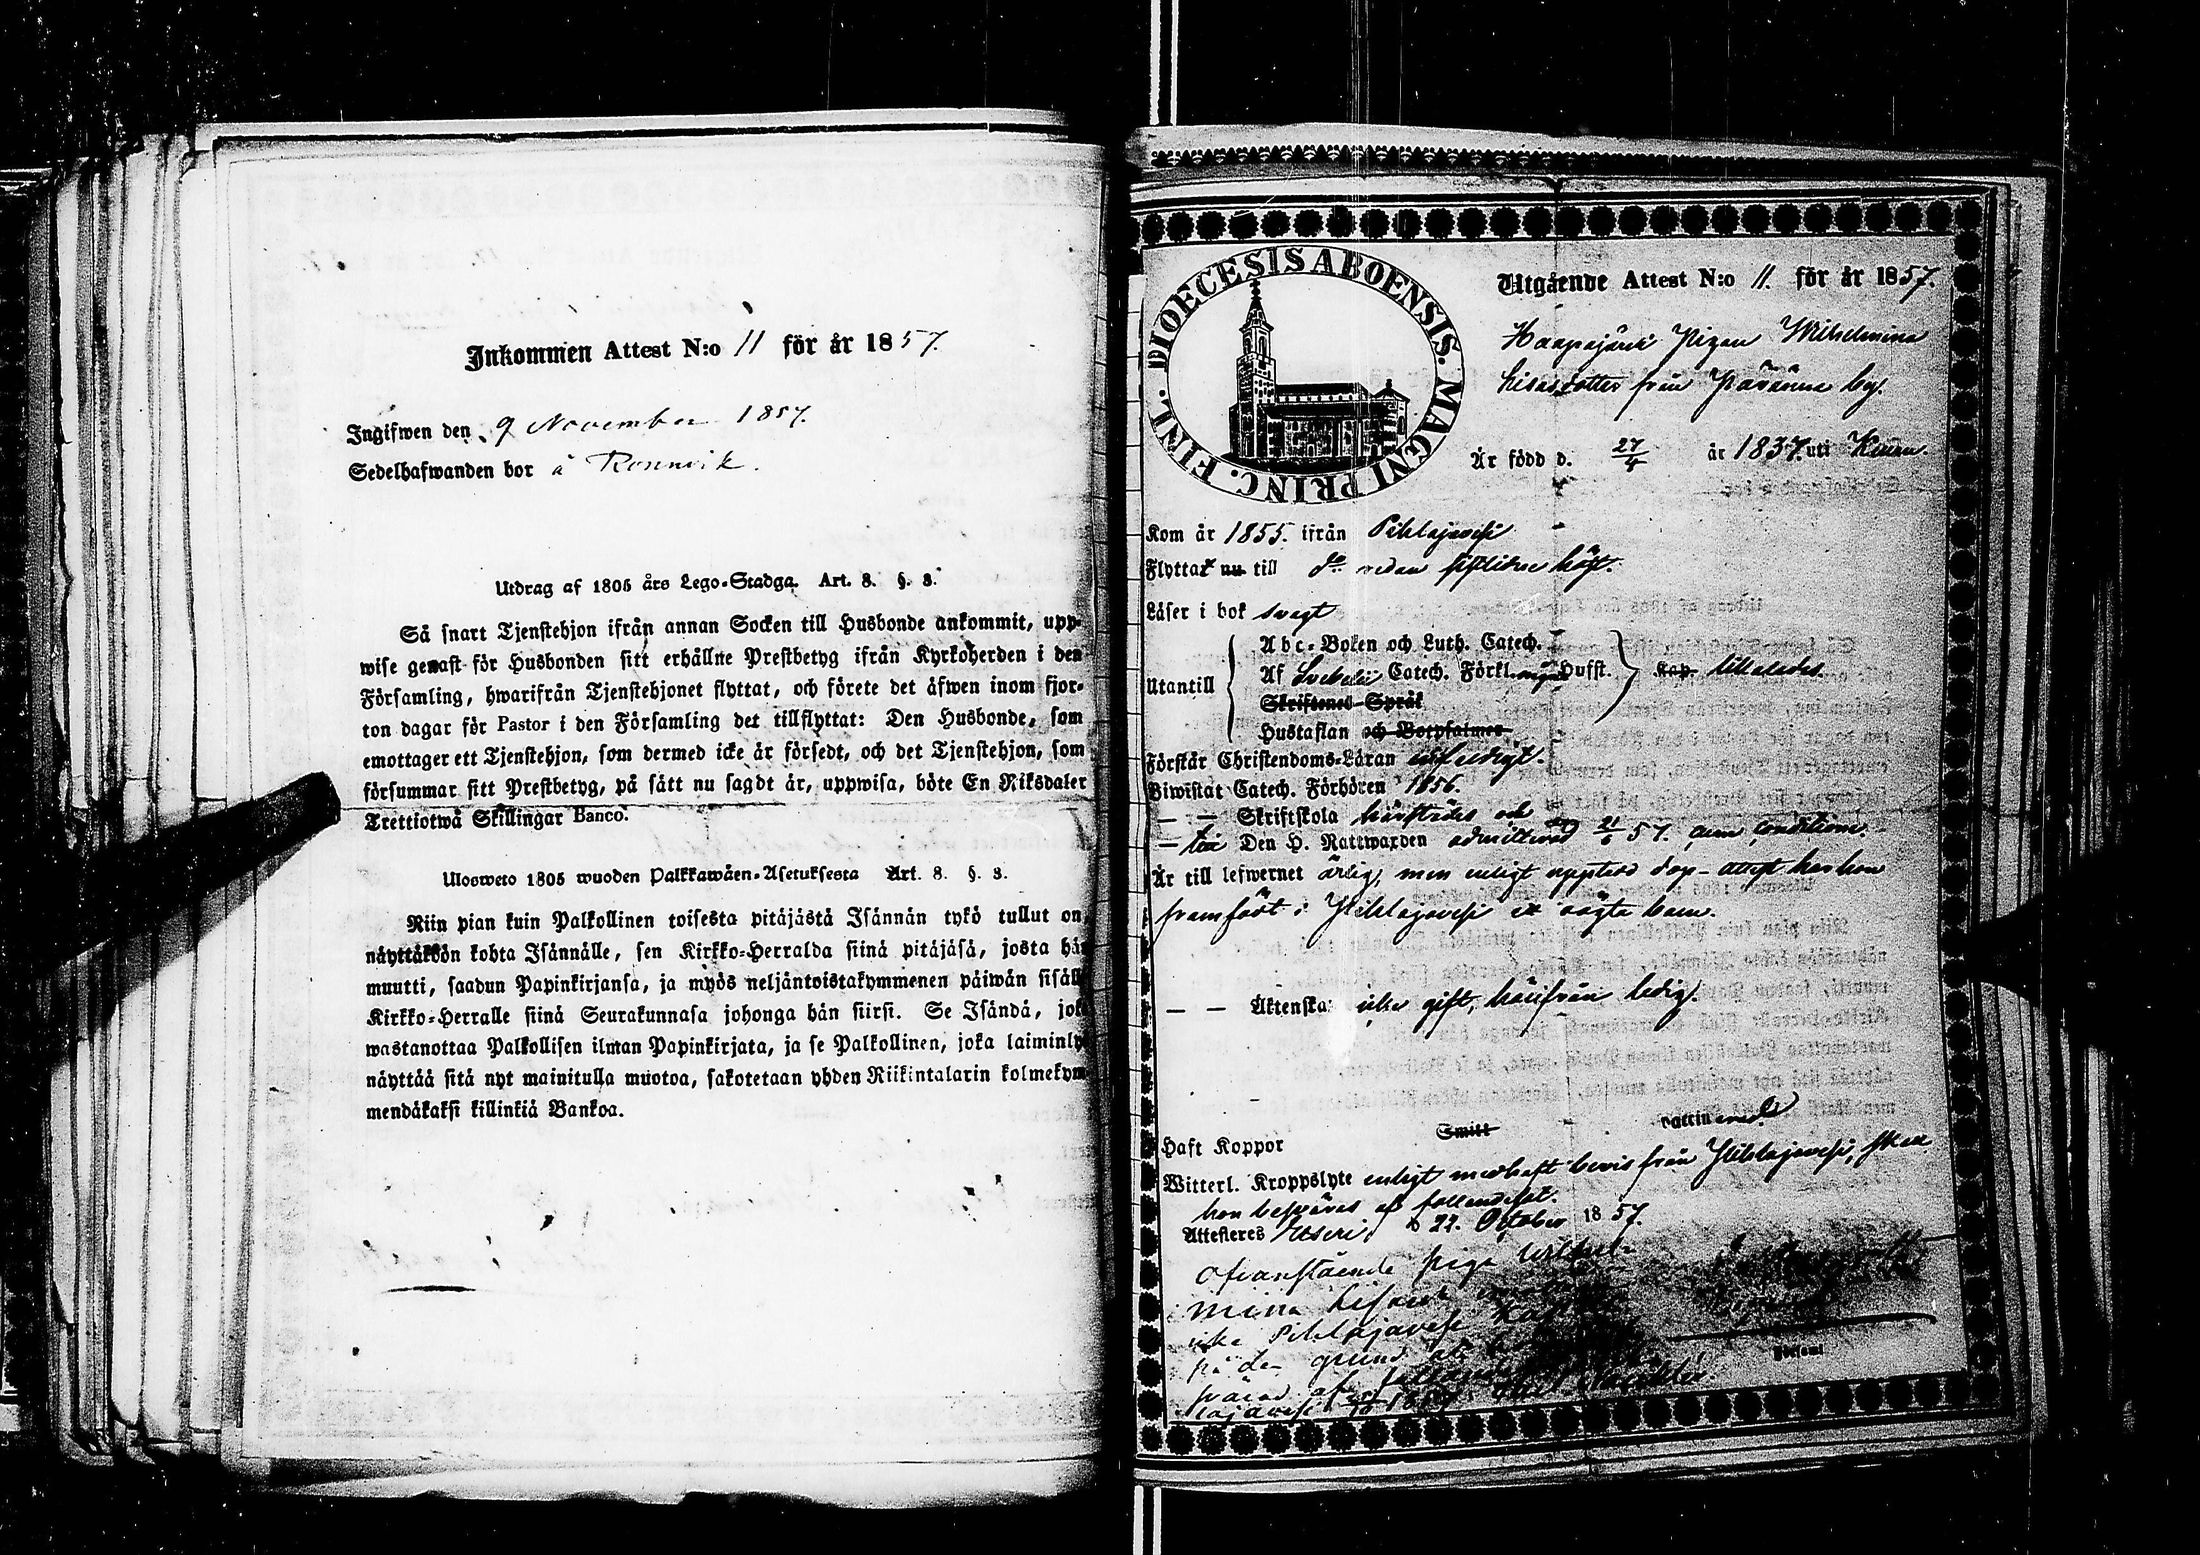 Inkommen Attest N:o 11 för år 1857.
Ingifwen den 9 November 1857.
Sedelhafwanden bor å Ronnvik.
Utdrag af 1805 års Lego-Stadga. Art. 8. §. 3.
Så snart Tjenstehjon ifrån annan Socken till Husbonde ankommit, upp-
wise genast för Husbonden sitt erhållne Prestbetyg ifrån Kyrkoherden i den
Församling, hwarifrån Tjenstehjonet flyttat, och förete det äfwen inom fjor-
ton dagar för Pastor i den Församling det tillflyttat: Den Husbonde, som
emottager ett Tjenstehjon, som dermed icke är försedt, och det Tjenstehjon, som
försummar sitt Prestbetyg, på sätt nu sagdt är, uppwisa, böte En Riksdaler
Trettiotwå Skillingar Banco.
Ulosweto 1805 wuoden Palkkawäen-Asetuksesta Art. 8. §. 3.
Niin pian kuin Palkollinen toisesta pitäjästä Isännän tykö tullut on,
näyttäköön kohta Isännälle, sen Kirkko-Herralda siinä pitäjäsä, josta hän
muutti, saadun Papinkirjansa, ja myös neljäntoistakymmenen päiwän sisällä
Kirkko-Herralle siinä Seurakunnasa johonga hän siirsi. Se Isändä, joka
wastanottaa Palkollisen ilman Papinkirjata, ja se Palkollinen, joka laiminly
näyttää sitä nyt mainitulla muotoa, sakotetaan yhden Riikintalarin kolmekym-
mendäkaksi killinkiä Bankoa.
DIOECESIS ABOENSIS. MAGNI PRINC. FINL.
Utgående Attest N:o 11. för år 1857.
Haapajärvi Pigan Wilhelmina
Lisasdotter från Päärinne by.
Är född d. 27/4 år 1837. uti
Kom år 1855. ifrån Pihlajavesi
Flyttat nu till do redan sistlidne höst.
Läser i bok svagt
Abc-Boken och Luth. Catech.
Utantill Af Svebelii Catech. Förkl. Hufst. kap. tillaledes.
Skriftenes Språk
Hustaflan och Botpsalmer
Förstår Christendoms-Läran
Biwistat Catech. Förhören 1856.
— — Skriftskola härstädes och
— Den H. Nattwarden admitterad 21/6 57. cum conditione.
Är till lefwernet ärlig, men enligt dop-attest har hon
framfödt i Pihlajavesi ett oägta barn.
— — Äktenskap icke gift, härifrån ledig.
Haft Koppor Smitt vaccinerad
Witterl. Kroppslyte enligt medhaft bevis från Pihlajavesi, skall
hon besväras af fallandesot.
Attesteres d 22. October 1857.
Ofvanstående piga Wilhel-
mina
Pihlajavesi
på den grund att
af